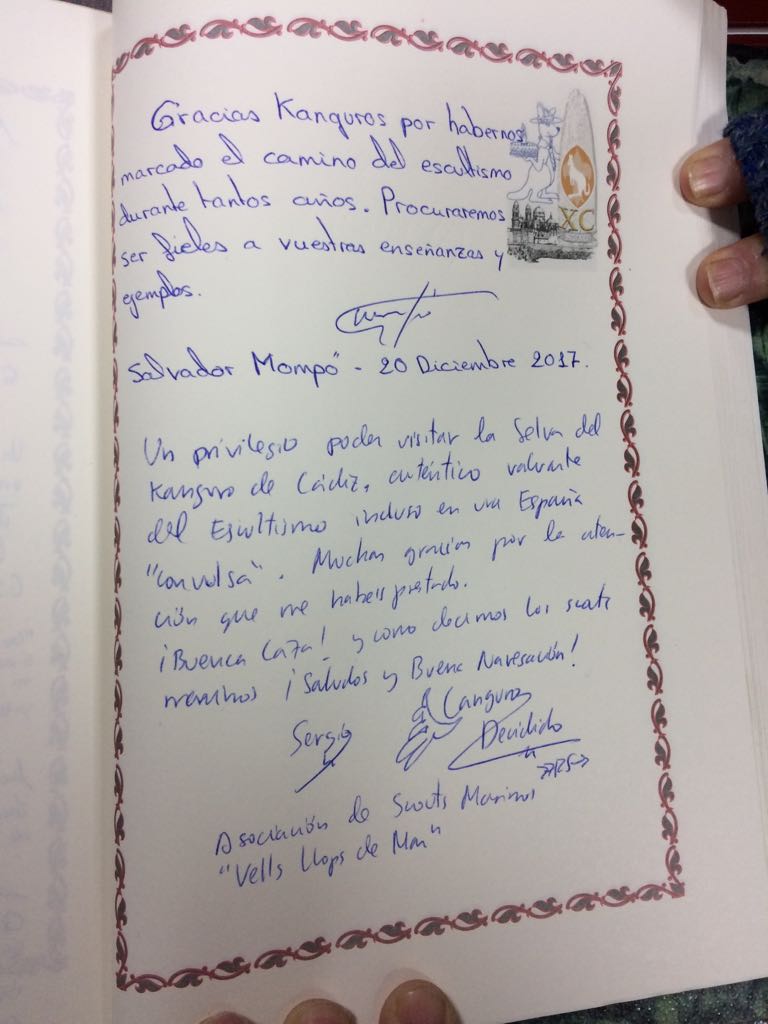 Gracias Kanguros por habernos
marcado el camino del escultismo
durante tantos años. Procuraremos
ser fieles a vuestras enseñanzas y
ejemplos.
XC
Salvador Mompó - 20 Diciembre 2017.
Un privilegio poder visitar la Selva del
Kanguro de Cádiz, auténtico valuarte
del Escultismo incluso en una España
"convulsa". Muchas gracias por la aten-
ción que me habeis prestado.
¡Buenca Caza! y como decimos los scouts
marinos ¡Saludos y Buena Navegación!
Sergio
Canguro
Decidido
Asociación de Scouts Marinos
"Vells Llops de Mar"